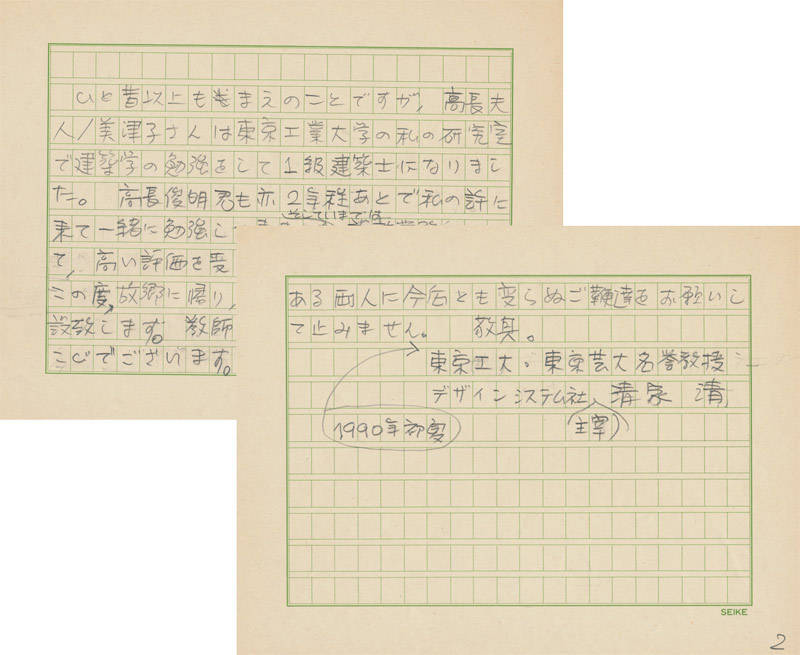 ひと昔以上もまえのことですが、高長夫
人/美津子さんは東京工業大学の私の研究室
で建築学の勉強をして1級建築士になりまし
た。 高長俊明君も亦2年程あとで私の許に
来て一緒に勉強し
て、高い評価を受
この度、故郷に帰り、
設致します。 教師
こじでございます。
ある両人に今后とも変らぬご鞭達をお願いし
て止みません。 敬具。
東京工大・東京芸大名誉教授
デザインシステム社 清家 清
(主宰)
1990年初夏
SEIKE
2